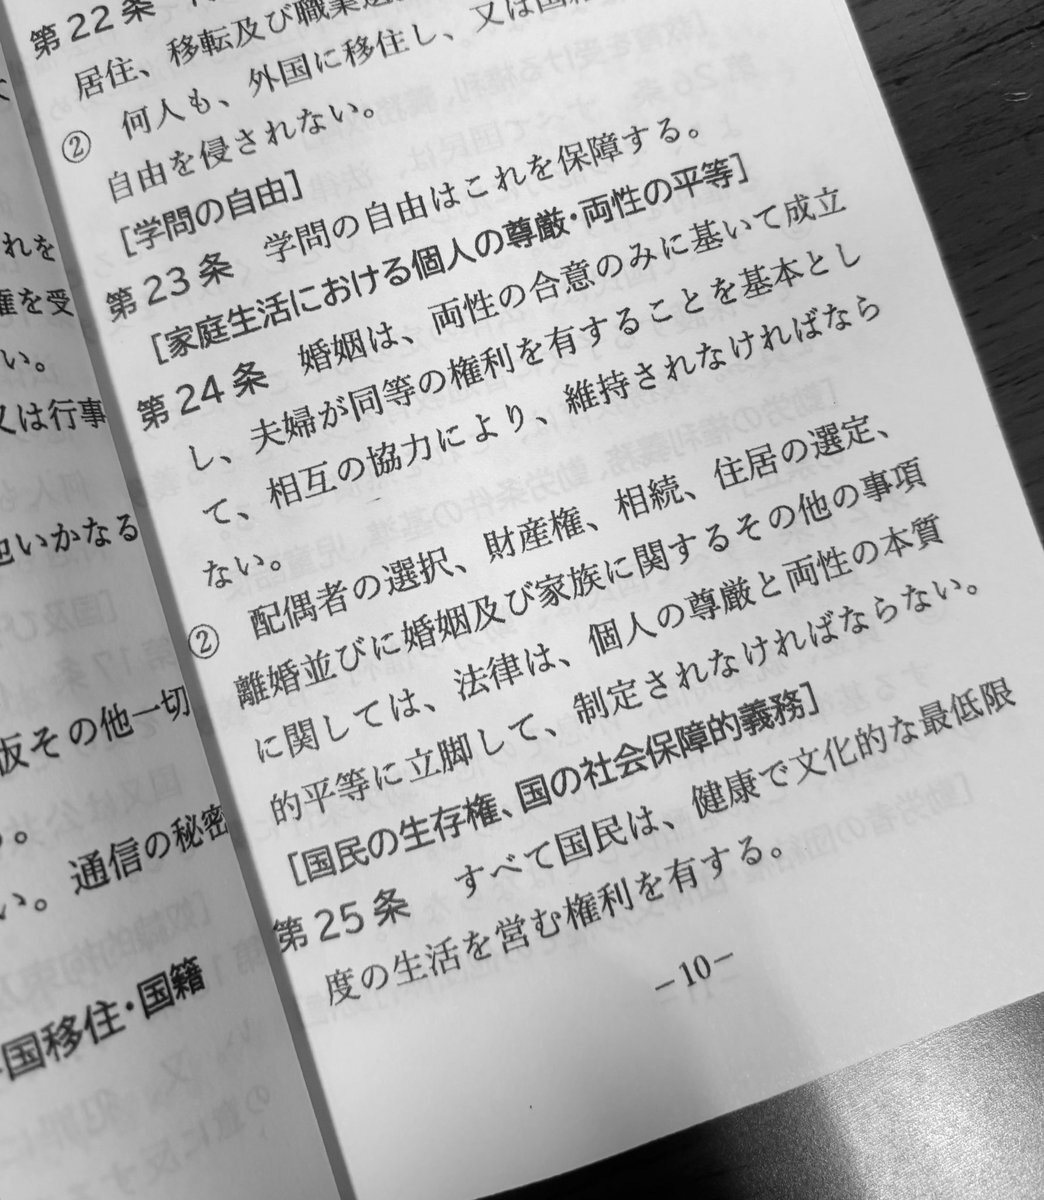 第22条
居住、移転及び職業選
② 何人も、外国に移住し、又は国籍
自由を侵されない。
[学問の自由]
第23条 学問の自由はこれを保障する。
[家庭生活における個人の尊厳・両性の平等]
第24条 婚姻は、両性の合意のみに基いて成立
し、夫婦が同等の権利を有することを基本とし
て、相互の協力により、維持されなければなら
ない。
② 配偶者の選択、財産権、相続、住居の選定、
離婚並びに婚姻及び家族に関するその他の事項
に関しては、法律は、個人の尊厳と両性の本質
的平等に立脚して、制定されなければならない。
[国民の生存権、国の社会保障的義務]
第25条 すべて国民は、健康で文化的な最低限
度の生活を営む権利を有する。
－10－
れを
権を受
い。
又は行事
いかなる
版その他一切
。
い。通信の秘密
国移住・国籍